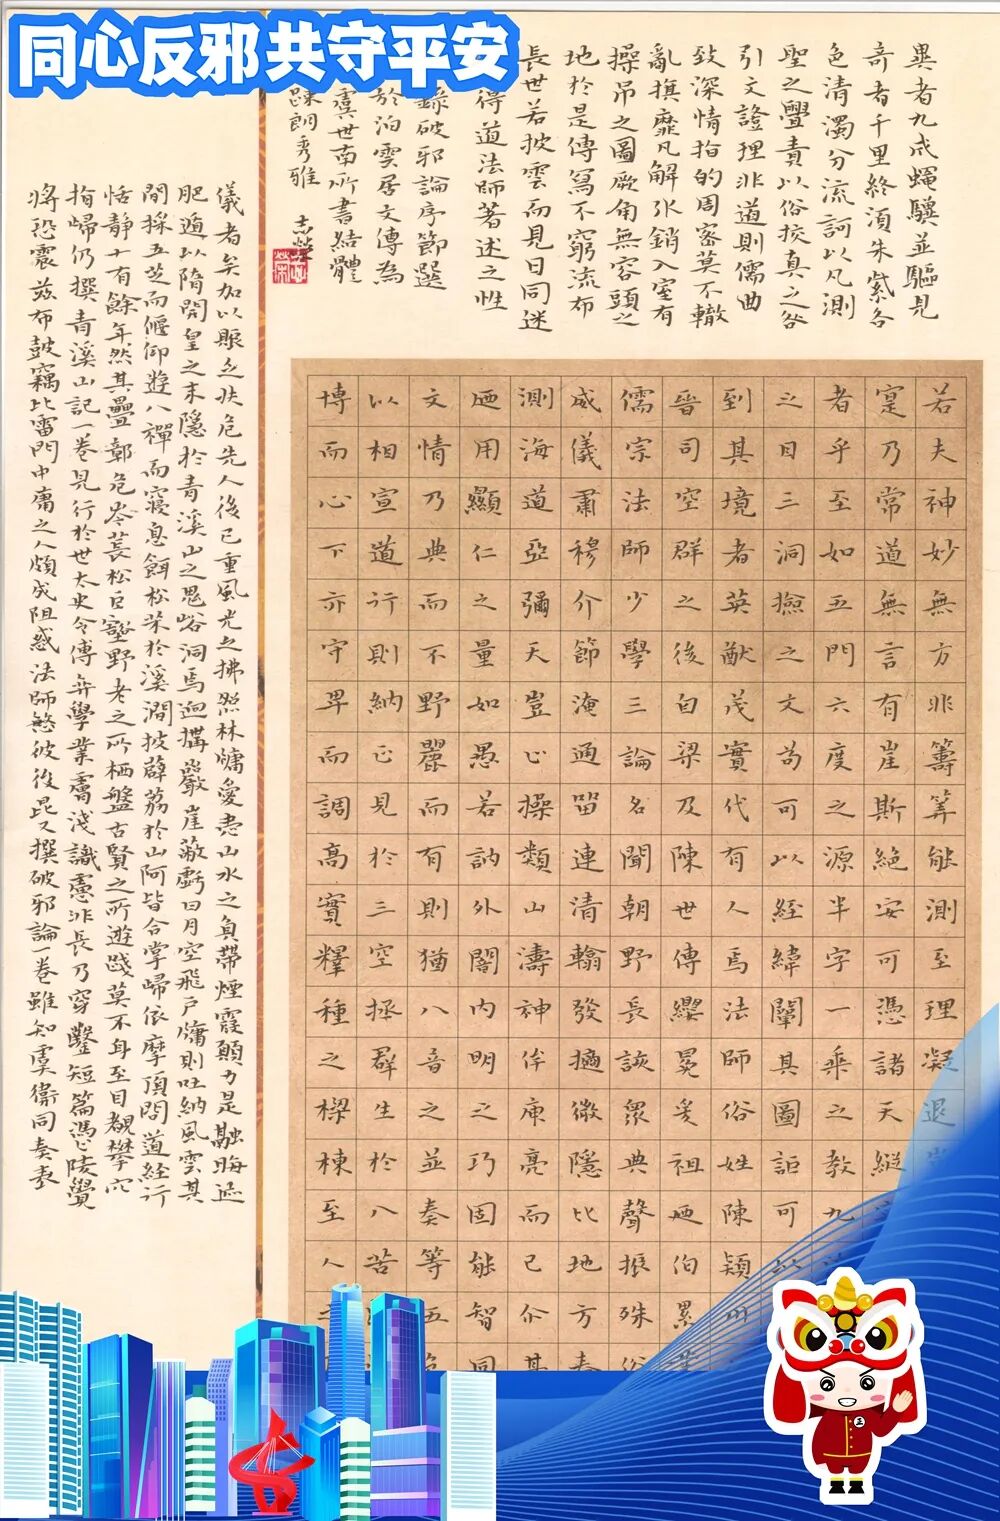 同心反邪共守平安
若夫神妙無方非籌筭能測至理凝
寔乃常道無言有崖斯絕安可憑諸天縱
者乎至如五門六度之源半字一乘之教九
之目三洞撿之文苟可以經緯闡其圖詎可以
到其境者英猷茂實代有人焉法師俗姓陳潁川
晉司空群之後自梁及陳世傳纓冕爰祖廼伯累
儒宗法師少學三論名聞朝野長該眾典聲振殊俗
威儀肅穆介節淹通留連清翰發擿微隱比地方春
測海道亞彌天豈止操類山濤神侔庾亮而已尒其
廼用顯仁之量如愚若訥外闇內明之巧固能智同
文情乃典而不野麗而有則猶八音之並奏等五色
以相宣道行則納正見於三空拯群生於八苦
博而心下亦守卑而調高實釋種之樑棟至人
儀者矣加以賑乏扶危先人後己重風光之拂照林牖愛盡山水之負帶煙霞願力是融晦迹
肥遁以隋開皇之末隱於青溪山之鬼谷洞焉迺搆巖崖蔽虧日月空飛戶牖則吐納風雲其
間採五芝而偃仰遊八禪而寢息餌松朮於溪澗披薜荔於山阿皆合掌歸依摩頂問道經行
恬靜十有餘年然其疊鄣危岑萇松巨壑野老之所栖盤古賢之所遊踐莫不身至目覩攀穴
指歸仍撰青溪山記一卷見行於世太史令傅弈學業膚淺識慮非長乃穿鑿短篇憑陵覺
將恐震茲布鼓竊比雷門中庸之人頗成阻惑法師愍彼後昆又撰破邪論一卷雖知虞衛同奏表
畢者九成蠅驥並驅見
奇者千里終須朱紫各
色清濁分流訶以凡測
聖之釁責以俗校真之咎
引文證理非道則儒曲
致深情指的周密莫不轍
亂旗靡瓦解氷銷入室有
操吊之圖厥角無容頭之
地於是傳寫不窮流布
長世若披雲而見日同迷
得道法師著述之性
錄破邪論序節選
於泊雲居文傳為
虞世南所書結體
疎朗秀雅 志榮